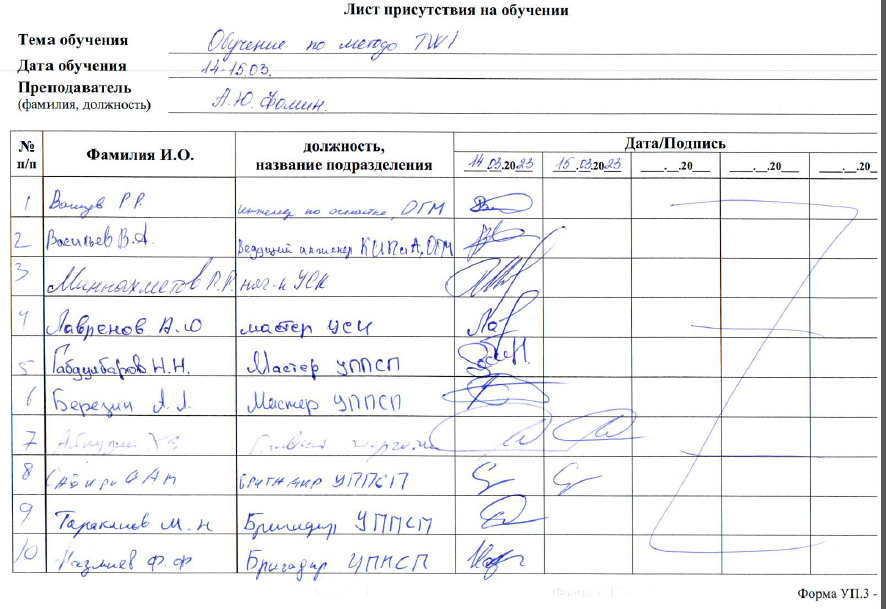 Лист присутствия на обучении
Тема обучения Обучение по методо TWI
Дата обучения 14-15.03.
Преподаватель А.Ю. Фомин.
(фамилия, должность)
№ п/п Фамилия И.О. должность, название подразделения Дата/Подпись
14.03.2023 15.03.2023 ___.__.20 ___.__.20 ___.__.20_
1 Р.Р. инженер по оснастке, ОГМ
2 Васильев В.А. Ведущий инженер КИПиА, ОГМ
3 Миннахметов Р.Р. нач-к УСК
4 Лавренов А.Ю мастер
5 Габдулбаров Н.Н. Мастер УППСП
6 Березин А.Л. Мастер УППСП
7
8 бригадир УППСП
9 Тараканов М.Н Бригадир УППСП
10 Назмиев Ф.Ф Бригадир УППСП
Форма УП.3 -